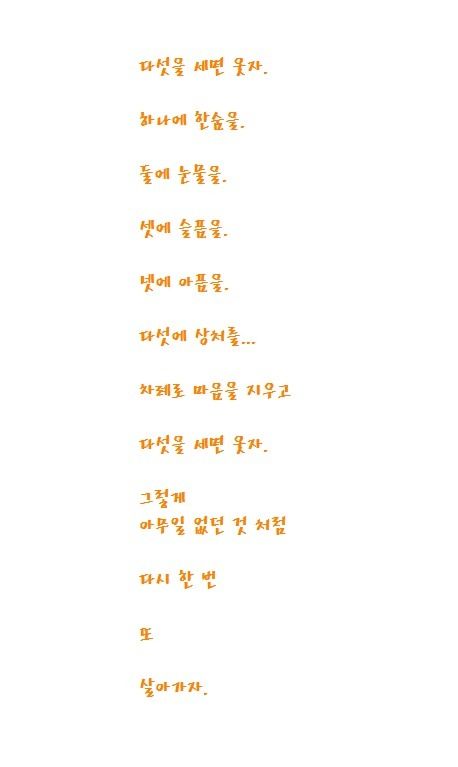 다섯을 세면 웃자.
하나에 한숨을.
둘에 눈물을.
셋에 슬픔을.
넷에 아픔을.
다섯에 상처를...
차례로 마음을 지우고
다섯을 세면 웃자.
그렇게
아무일 없던 것 처럼
다시 한 번
또
살아가자.